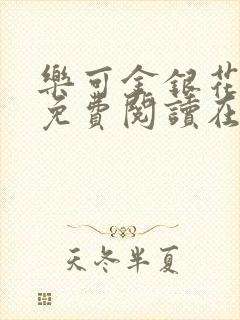 樂可金銀花
免費閱讀在
天冬半夏